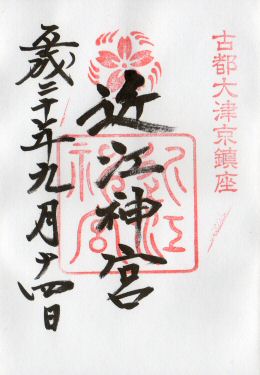 古都大津京鎮座
近江神宮
近江神宮
平成三十年九月十四日